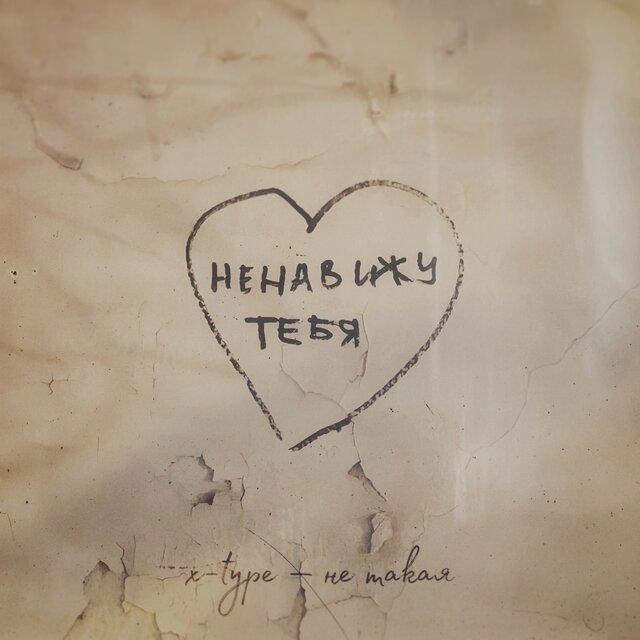 НЕНАВИЖУ
ТЕБЯ
x-type – не такая